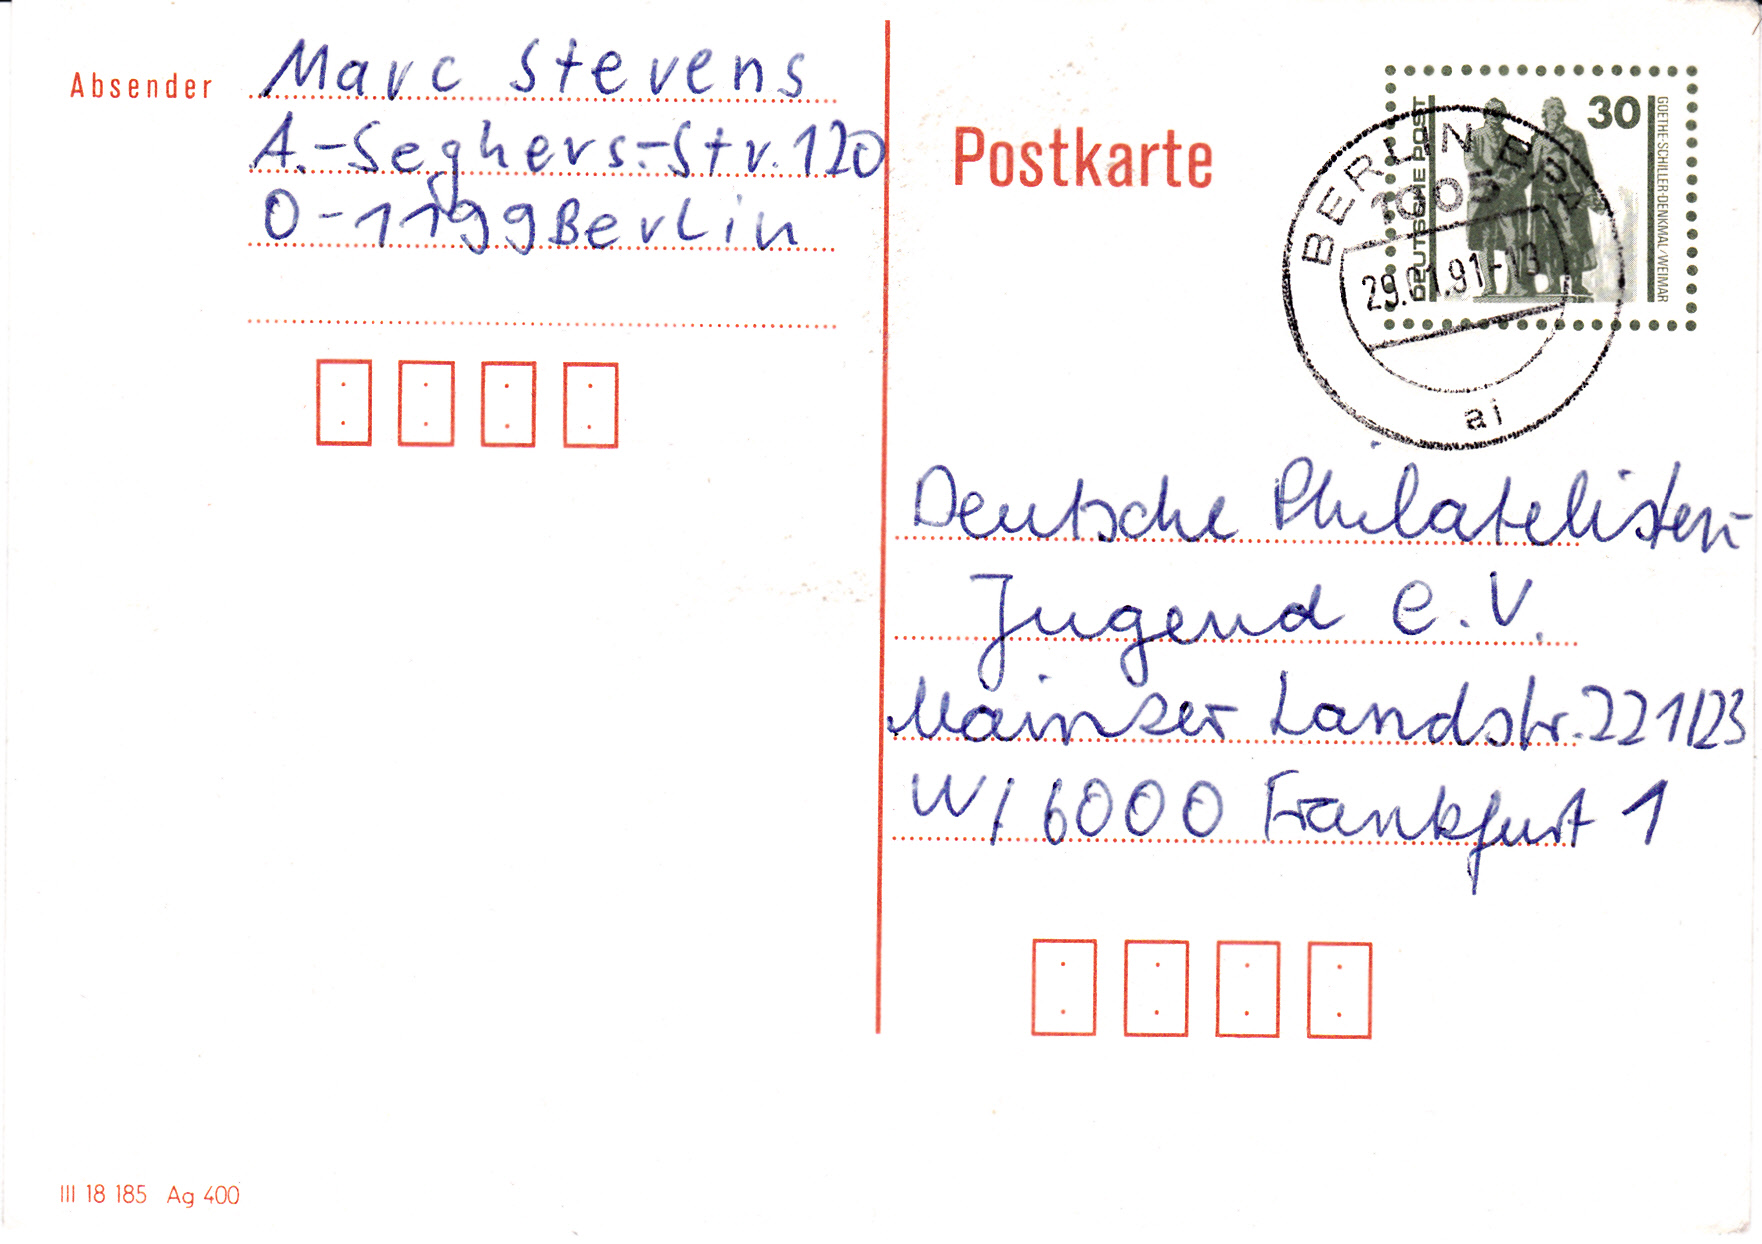 Absender
Marc Stevens
A.-Seghers.-Str. 120
O-1199 Berlin
Postkarte
30
DEUTSCHE POST
GOETHE-SCHILLER-DENKMAL/WEIMAR
BERLIN
29.01.91-13
ai
Deutsche Philatelisten-
Jugend e.V.
Mainzer Landstr. 221/23
W/ 6000 Frankfurt 1
III 18 185 Ag 400